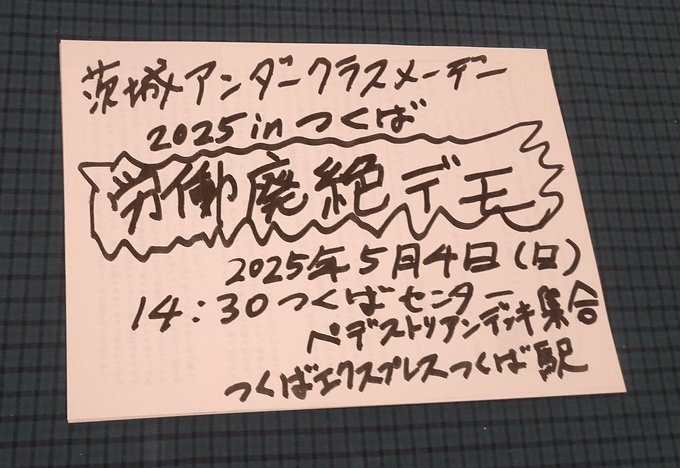 茨城アンダークラスメーデー
2025 in つくば
労働廃絶デモ
2025年5月4日(日)
14:30つくばセンター
ペデストリアンデッキ集合
つくばエクスプレスつくば駅